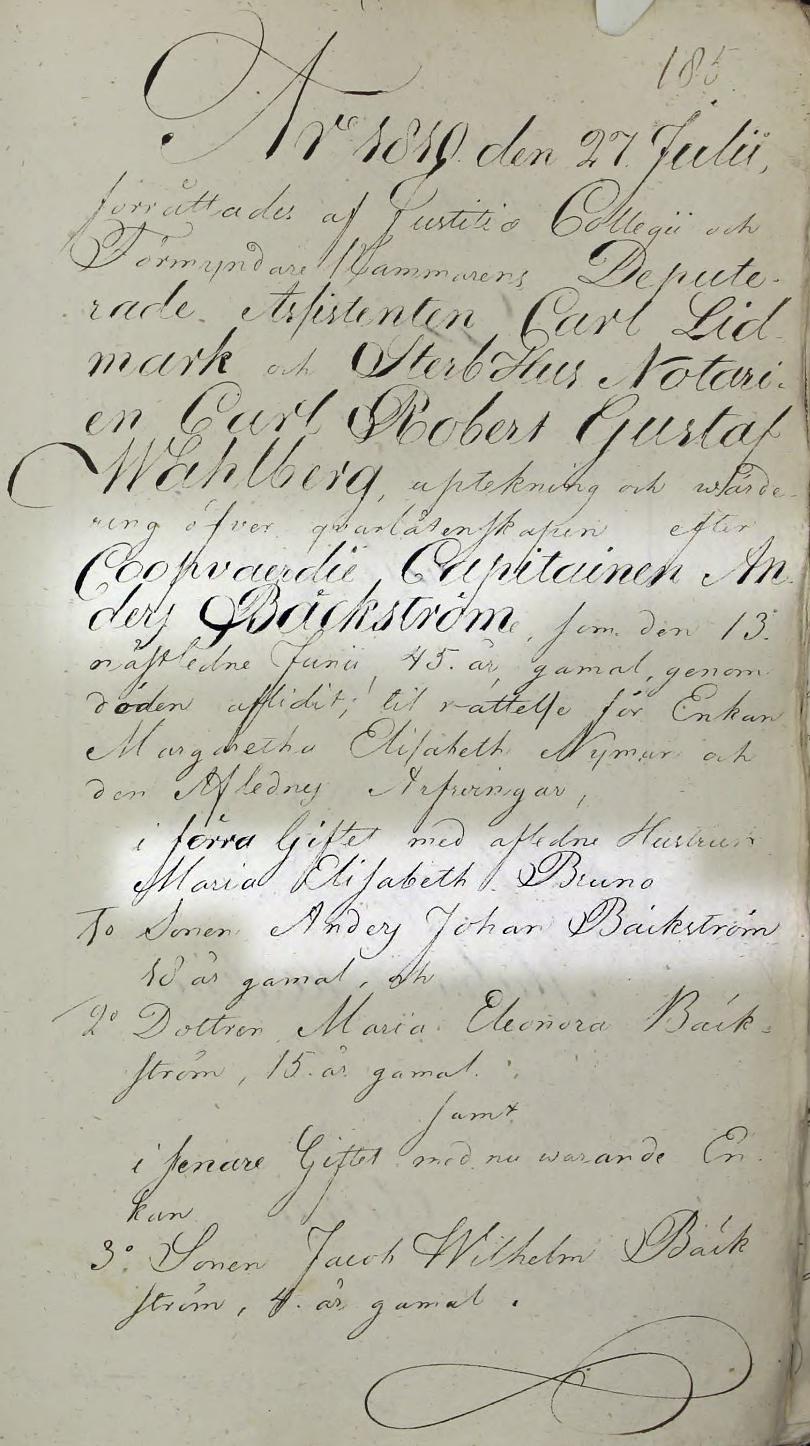 185
År 1819 den 27 Julii,
förrättades af Justitiæ Collegii och
Förmyndare Kammarens Depute-
rade Assistenten Carl Lid-
mark och SterbHus Notari-
en Carl Robert Gustaf
Wahlberg, uptekning och wärde-
ring öfver qvarlåtenskapen efter
Coopvaerdie Capitainen An-
ders Bäckström, som den 13
nästledne Junii, 45. år gamal, genom
döden aflidit; til rättelse för Enkan
Margaretha Elisabeth Nyman och
den Aflednes Arfvingar,
i förra Giftet med afledne Hustrun
Maria Elisabeth Bruno
1o Sonen Anders Johan Bäckström
18 år gamal, och
2o Dottren Maria Eleonora Bäck-
ström, 15. år gamal.
samt
i senare Giftet med nu warande En-
kan
3o Sonen Jacob Wilhelm Bäck
ström, 4. år gamal.